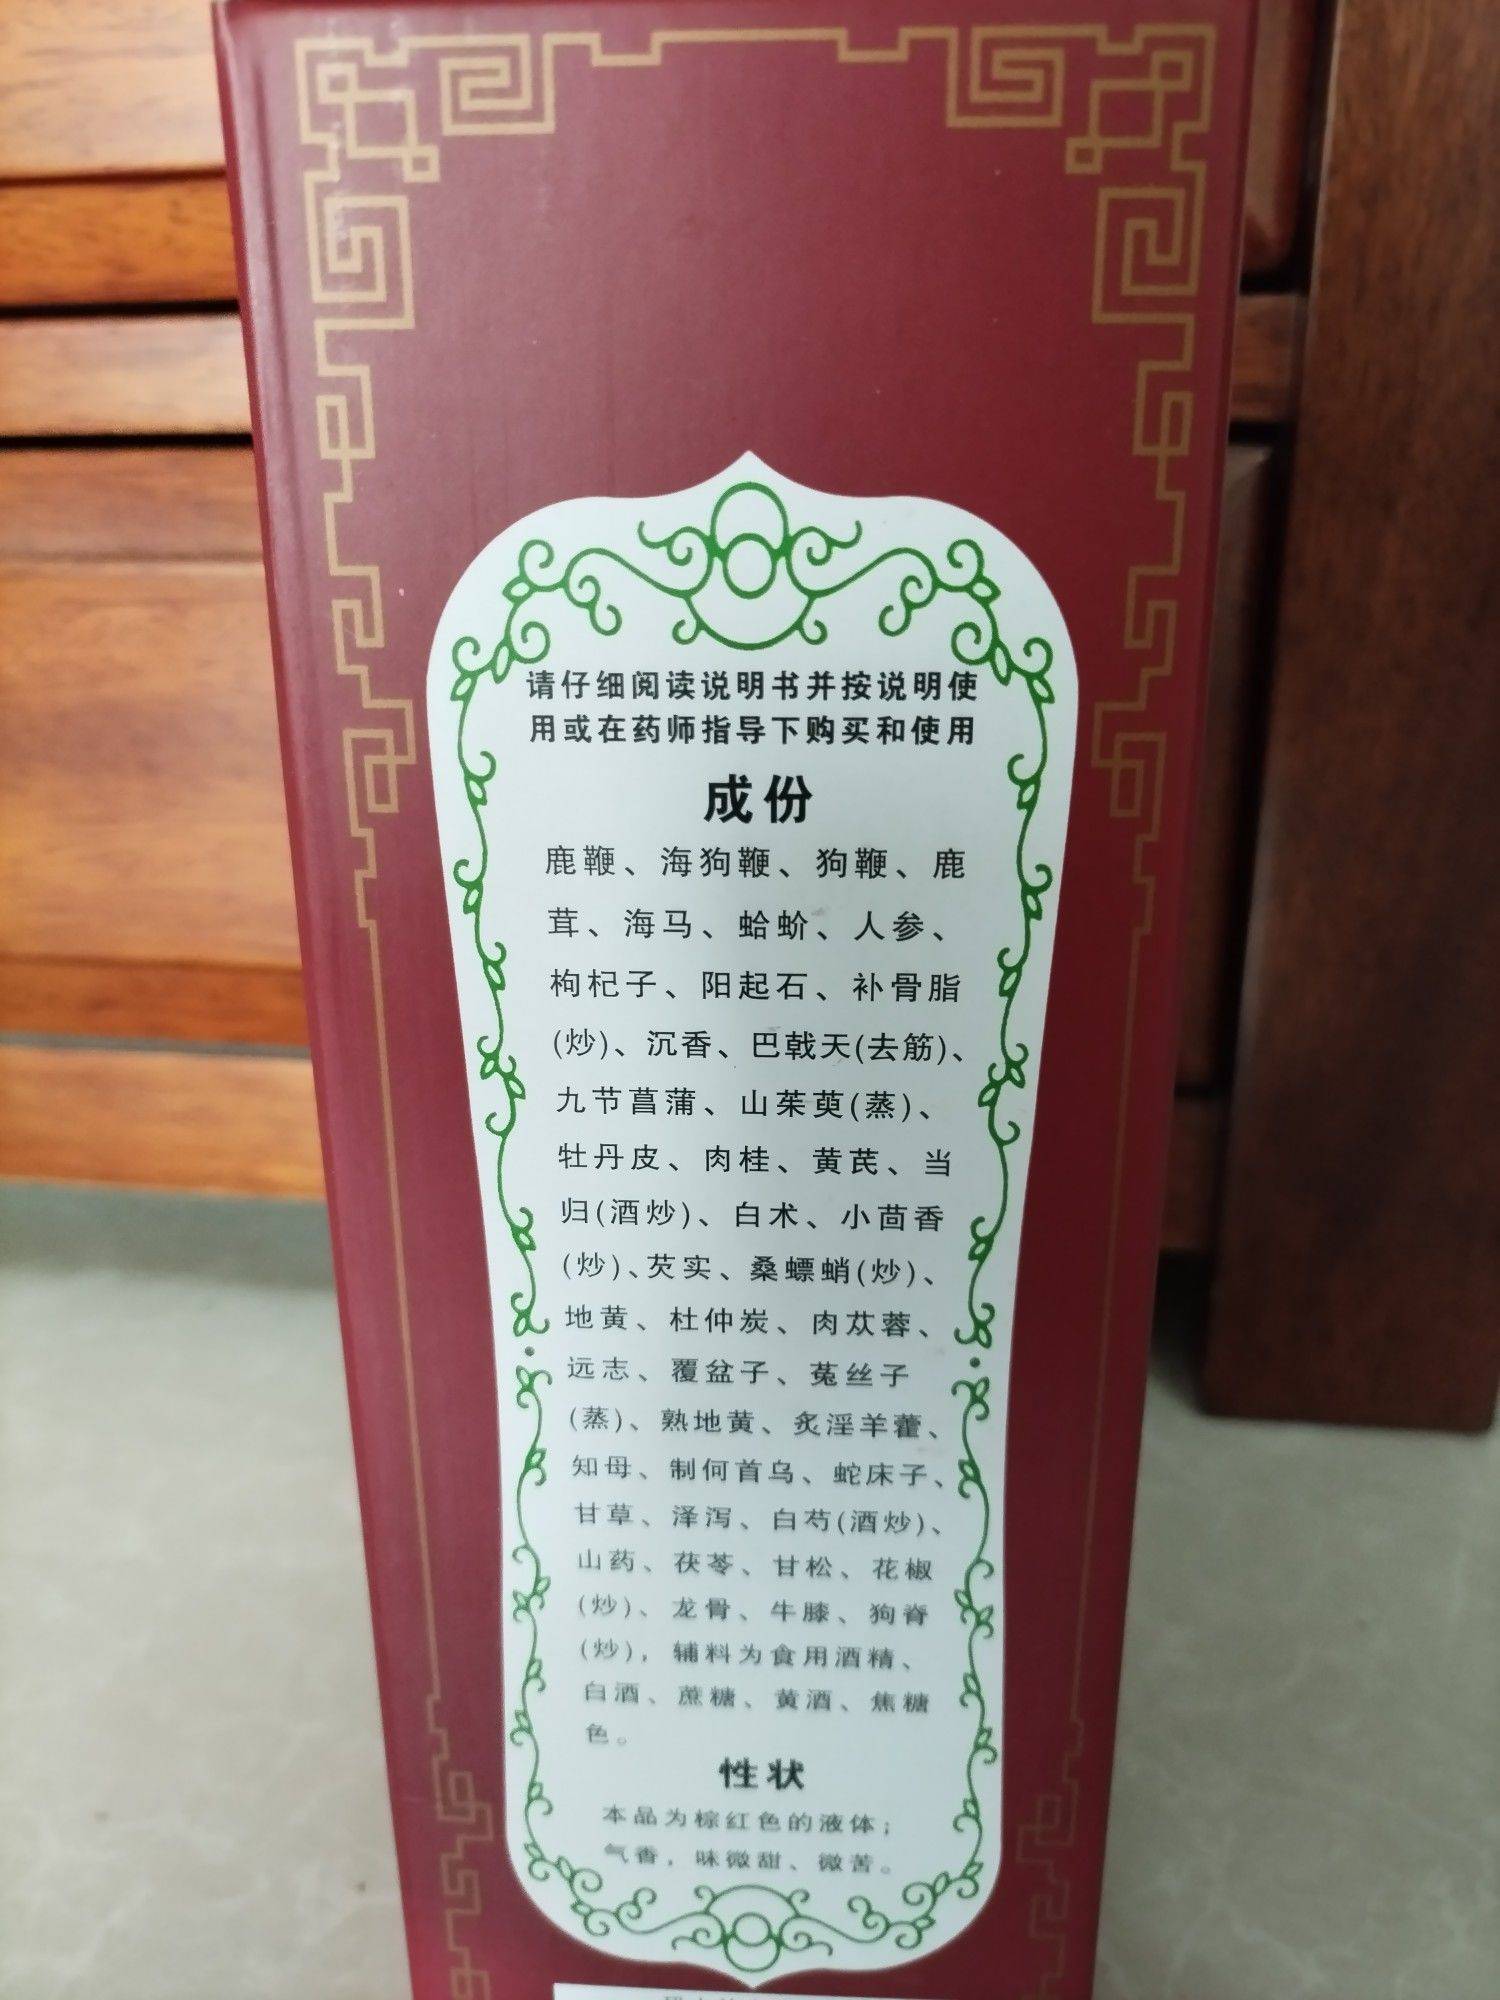 请仔细阅读说明书并按说明使
用或在药师指导下购买和使用
成份
鹿鞭、海狗鞭、狗鞭、鹿
茸、海马、蛤蚧、人参、
枸杞子、阳起石、补骨脂
(炒)、沉香、巴戟天(去筋)、
九节菖蒲、山茱萸(蒸)、
牡丹皮、肉桂、黄芪、当
归(酒炒)、白术、小茴香
(炒)、芡实、桑螵蛸(炒)、
地黄、杜仲炭、肉苁蓉、
远志、覆盆子、菟丝子
(蒸)、熟地黄、炙淫羊藿、
知母、制何首乌、蛇床子、
甘草、泽泻、白芍(酒炒)、
山药、茯苓、甘松、花椒
(炒)、龙骨、牛膝、狗脊
(炒)，辅料为食用酒精、
白酒、蔗糖、黄酒、焦糖
色。
性状
本品为棕红色的液体；
气香，味微甜、微苦。